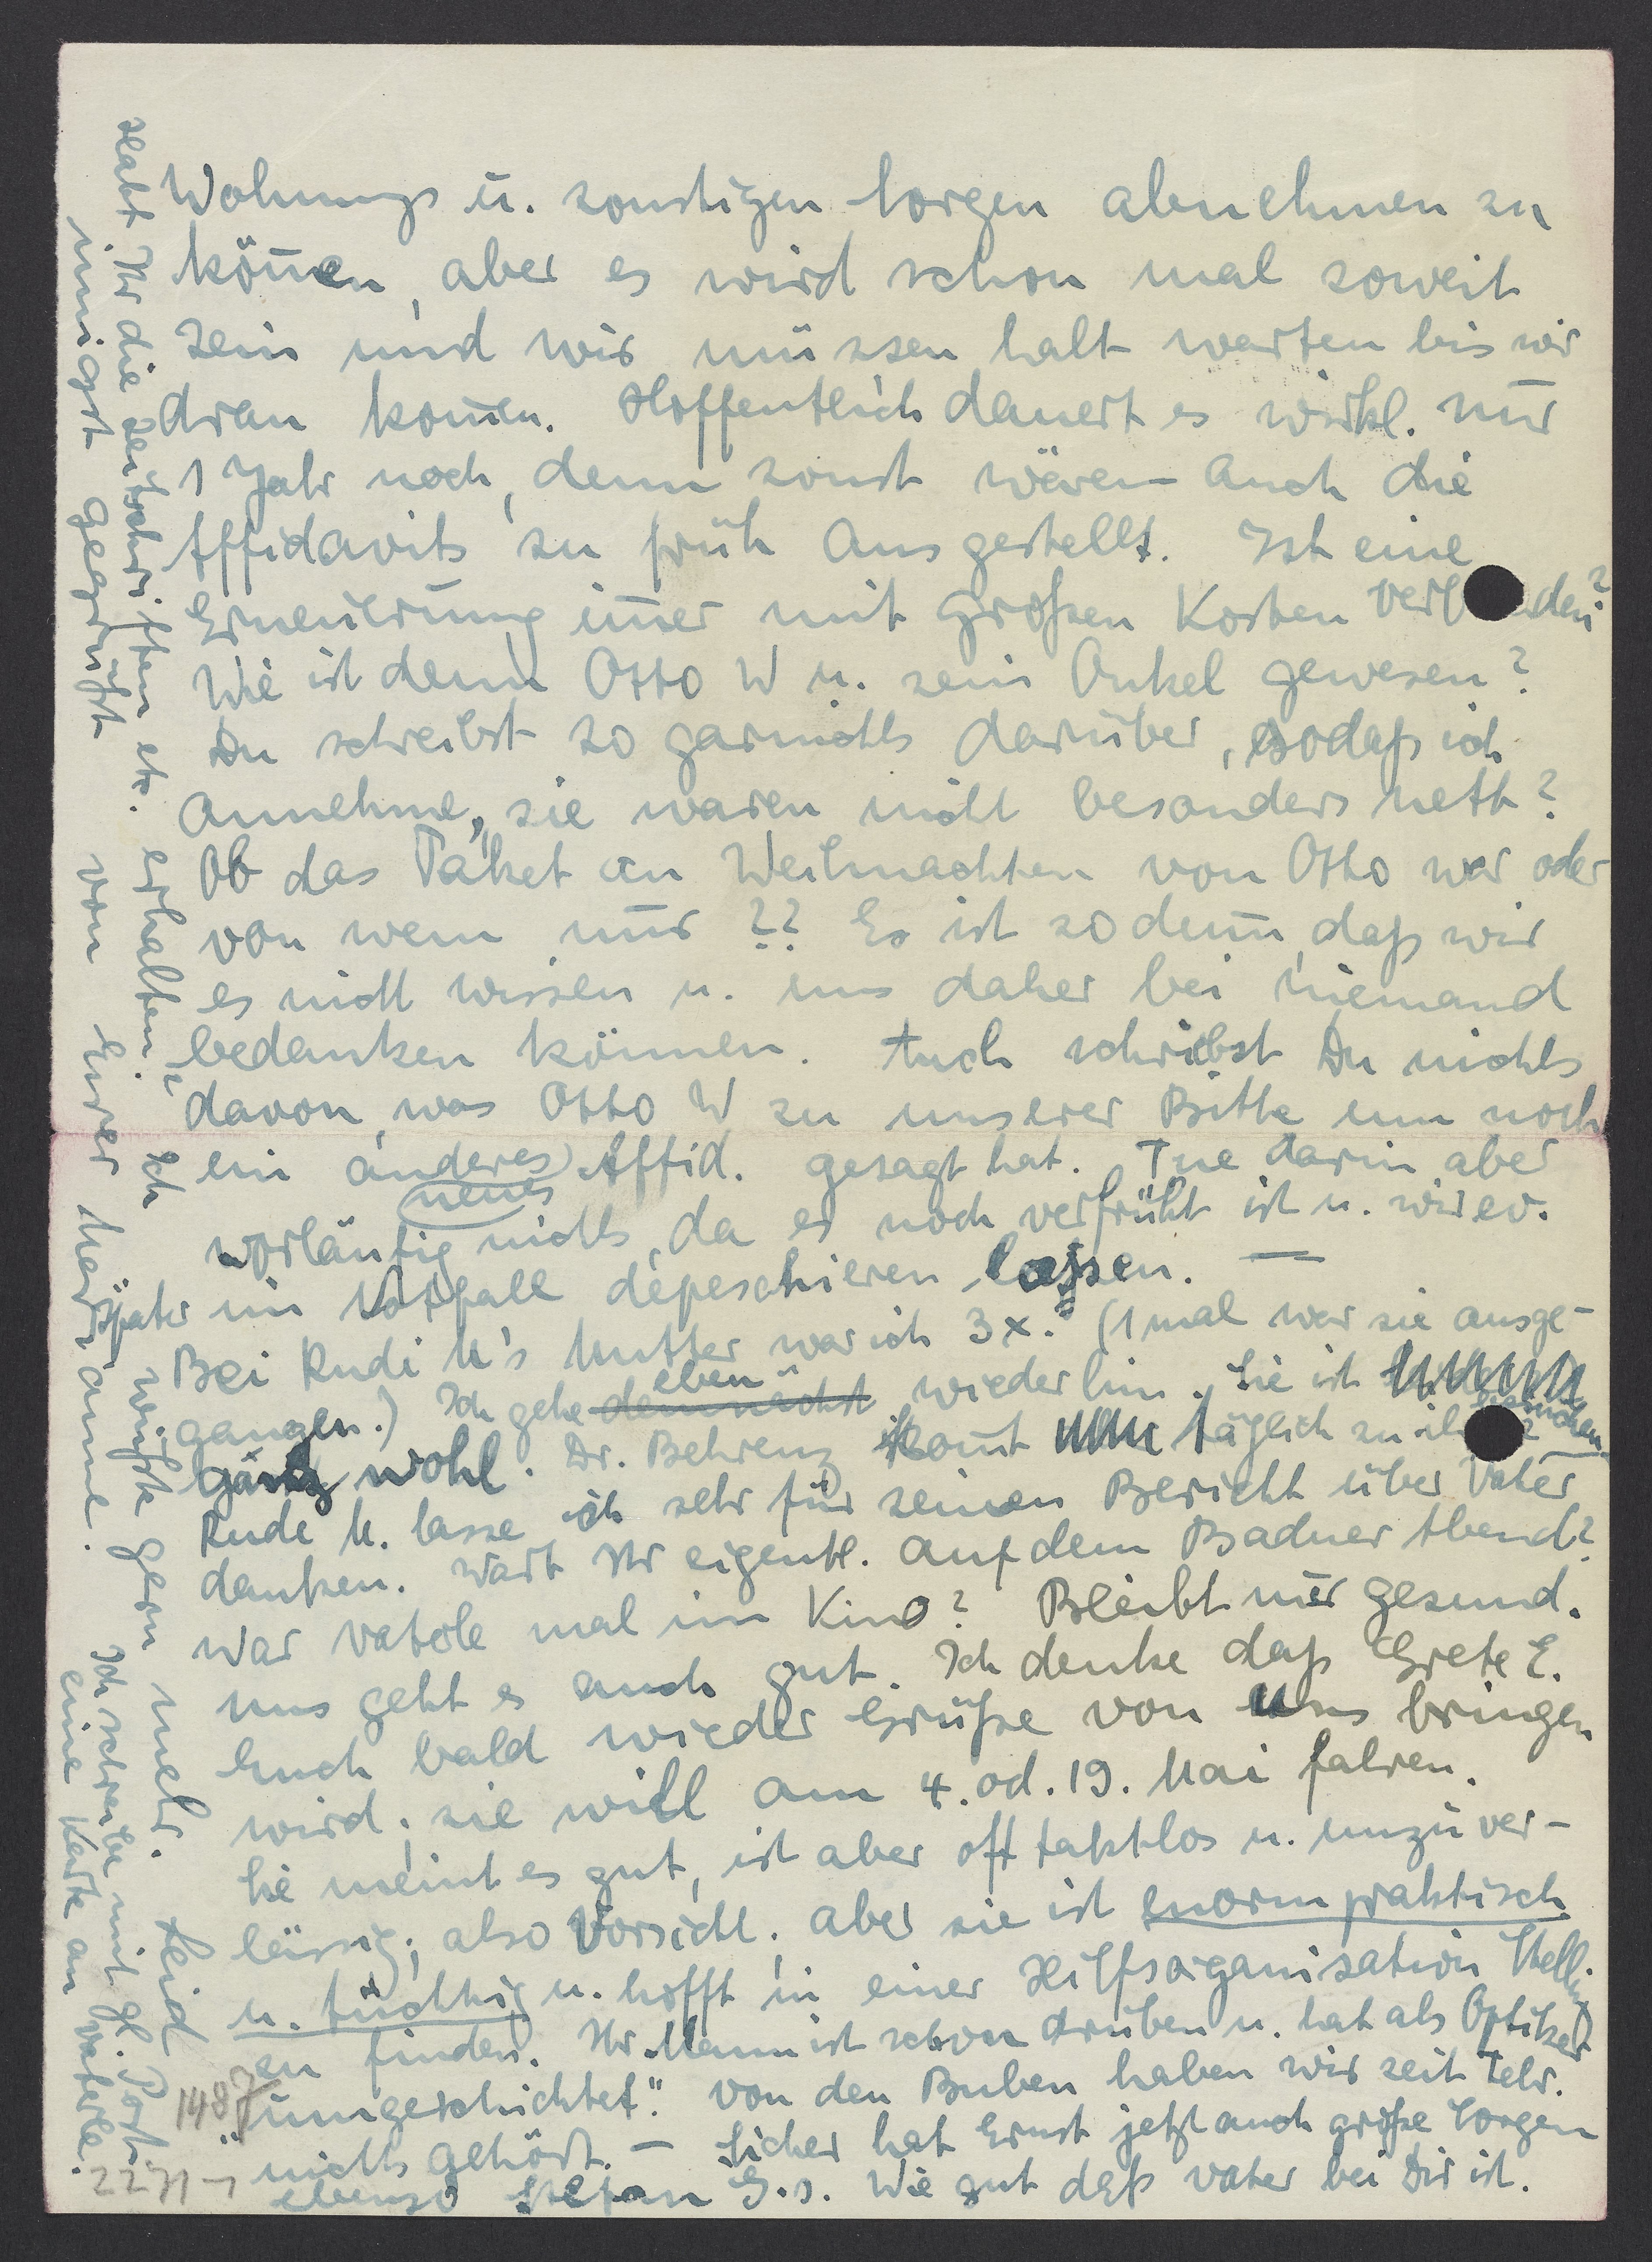 Wohnungs u. sonstigen Sorgen abnehmen zu
kön̄en, aber es wird schon mal soweit
sein und wir müssen halt warten bis wir
dran kom̄en. Hoffentlich dauert es wirkl. nur
1 Jahr noch, denn sonst wären auch die
Affidavits zu früh ausgestellt. Ist eine
Erneuerung im̄er mit großen Kosten verb den?
Wie ist denn Otto W u. sein Onkel gewesen?
Du schreibst so garnichts darüber, sodaß ich
annehme, sie waren nicht besonders nett?
Ob das Paket an Weihnachten von Otto war oder
von wem nur ?? Es ist so dum̄, daß wir
es nicht wissen u. uns daher bei niemand
bedanken können. Auch schreibst Du nichts
davon, was Otto W zu unserer Bitte um noch
ein anderes Affid. gesagt hat. Tue darin aber
neues
vorläufig nichts, da es noch verfrüht ist u. wir ev.
später im Notfall depeschieren lassen. —
Bei Rudi M's Mutter war ich 3x. (1 mal war sie ausge-
gangen.) Ich gehe demnächst eben wieder hin. Sie ist
ganz wohl. Dr. Behrenz kom̄t täglich zu ih besuchen.
Rudi M. lasse ich sehr für seinen Bericht über Vater
danken. Wart Ihr eigentl. auf dem Badner Abend?
War Vaterle mal im Kino? Bleibt nur gesund.
Uns geht es auch gut. Ich denke daß Grete E.
Euch bald wieder Grüße von uns bringen
wird; sie will am 4. od. 19. Mai fahren.
Sie meint es gut, ist aber oft taktlos u. unzuver-
lässig; also Vorsicht; aber sie ist enorm praktisch
u. tüchtig u. hofft in einer Hilfsorganisation Stellung
zu finden. Ihr Mann ist schon drüben u. hat als Optiker
"umgeschichtet". Von den Buben haben wir seit Febr.
nichts gehört. — Sicher hat Ernst jetzt auch große Sorgen
ebenso Stefan G.s. Wie gut daß Vater bei Dir ist.
Habt Ihr die Zeitschriften etc. erhalten? Ich wüßte gern mehr. Seid
innigst gegrüßt von Eurer Marianne.
Ich schreibe mit gl. Post
eine Karte an Vaterle.
1487
2271-1